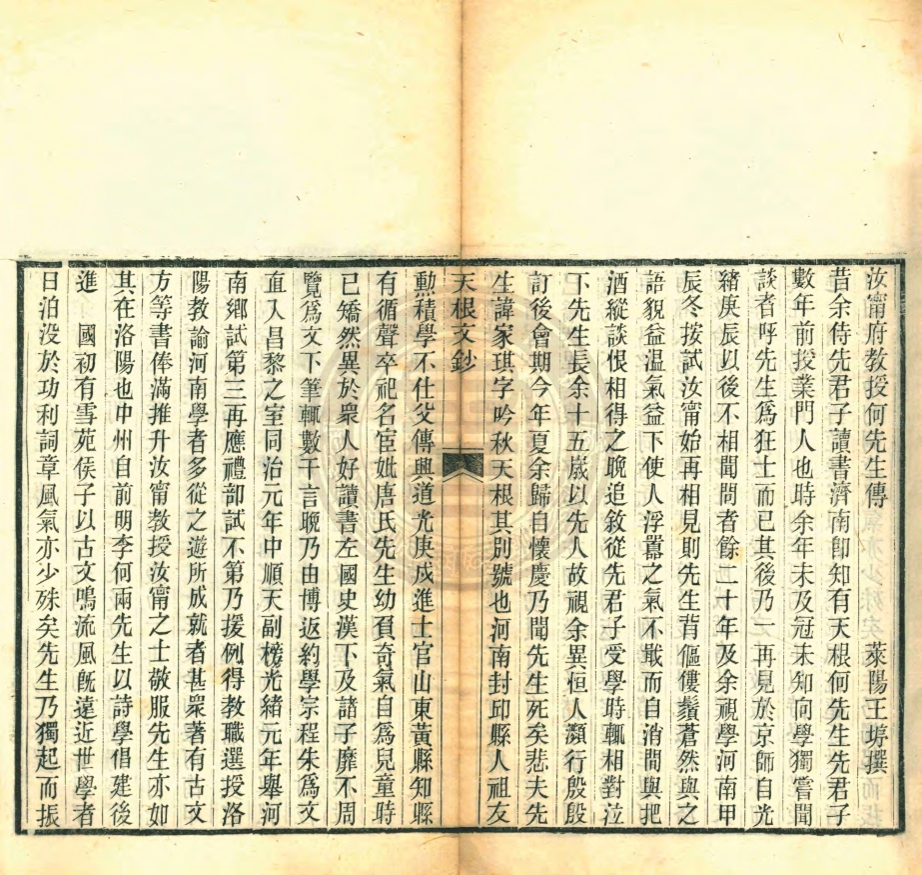 汝甯府教授何先生傳 萊陽王垿撰
昔余侍先君子讀書濟南卽知有天根何先生先君子
數年前授業門人也時余年未及冠未知向學獨嘗聞
談者呼先生爲狂士而已其後乃一再見於京師自光
緒庚辰以後不相聞問者餘二十年及余視學河南甲
辰冬按試汝甯始再相見則先生背傴僂鬚蒼然與之
語貌益溫氣益下使人浮囂之氣不戢而自消間與把
酒縱談恨相得之晚追敘從先君子受學時輒相對泣
下先生長余十五歲以先人故視余異恒人瀕行殷殷
訂後會期今年夏余歸自懷慶乃聞先生死矣悲夫先
生諱家琪字吟秋天根其別號也河南封邱縣人祖友
天根文鈔
勲積學不仕父傳興道光庚戌進士官山東黃縣知縣
有循聲卒祀名宦妣唐氏先生幼負奇氣自爲兒童時
已矯然異於衆人好讀書左國史漢下及諸子靡不周
覽爲文下筆輒數千言晚乃由博返約學宗程朱爲文
直入昌黎之室同治元年中順天副榜光緒元年舉河
南鄉試第三再應禮部試不第乃援例得教職選授洛
陽教諭河南學者多從之遊所成就者甚衆著有古文
方等書俸滿推升汝甯教授汝甯之士敬服先生亦如
其在洛陽也中州自前明李何兩先生以詩學倡建後
進 國初有雪苑侯子以古文鳴流風旣遠近世學者
日泊没於功利詞章風氣亦少殊矣先生乃獨起而振